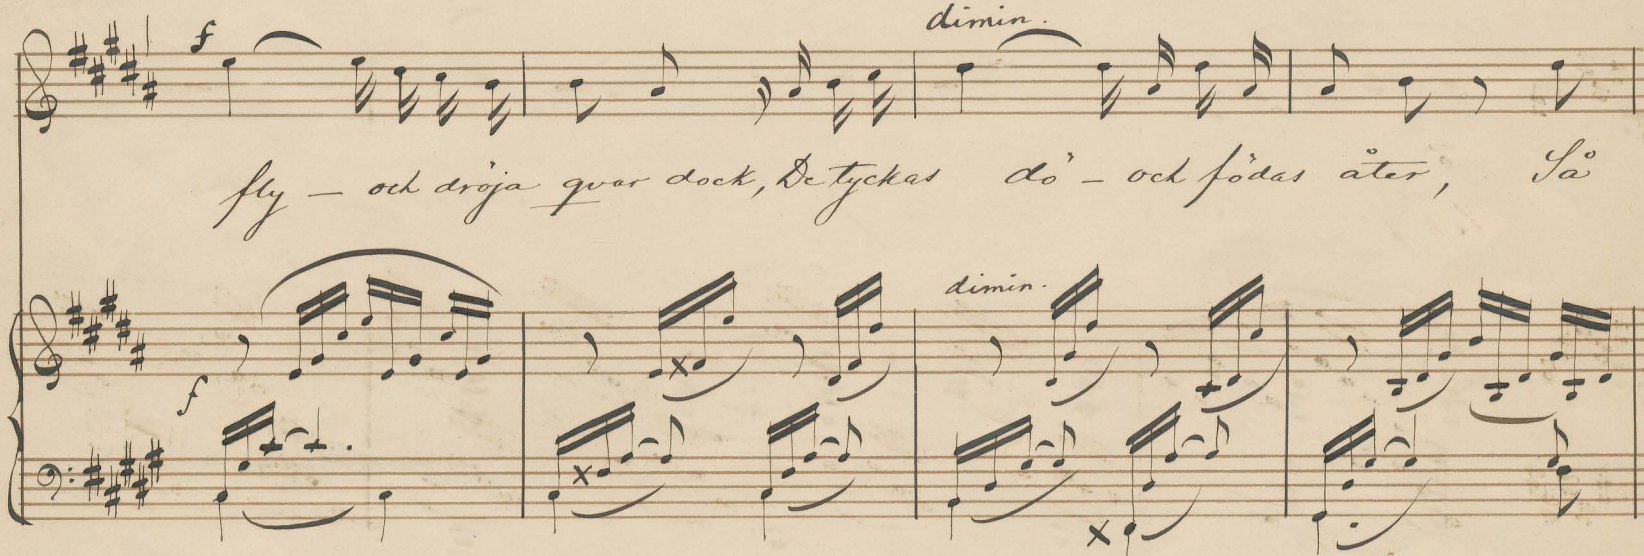 f
dimin.
fly – och dröja qvar dock, De tyckas dö – och födas åter, Så
dimin.
f